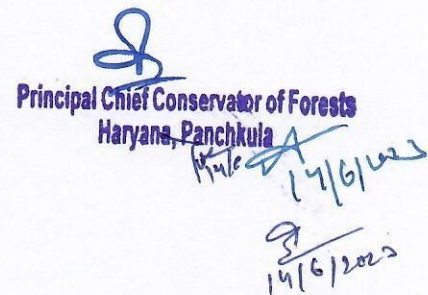 Principal Chief Conservator of Forests
Haryana, Panchkula
14/6/2023
14/6/2023